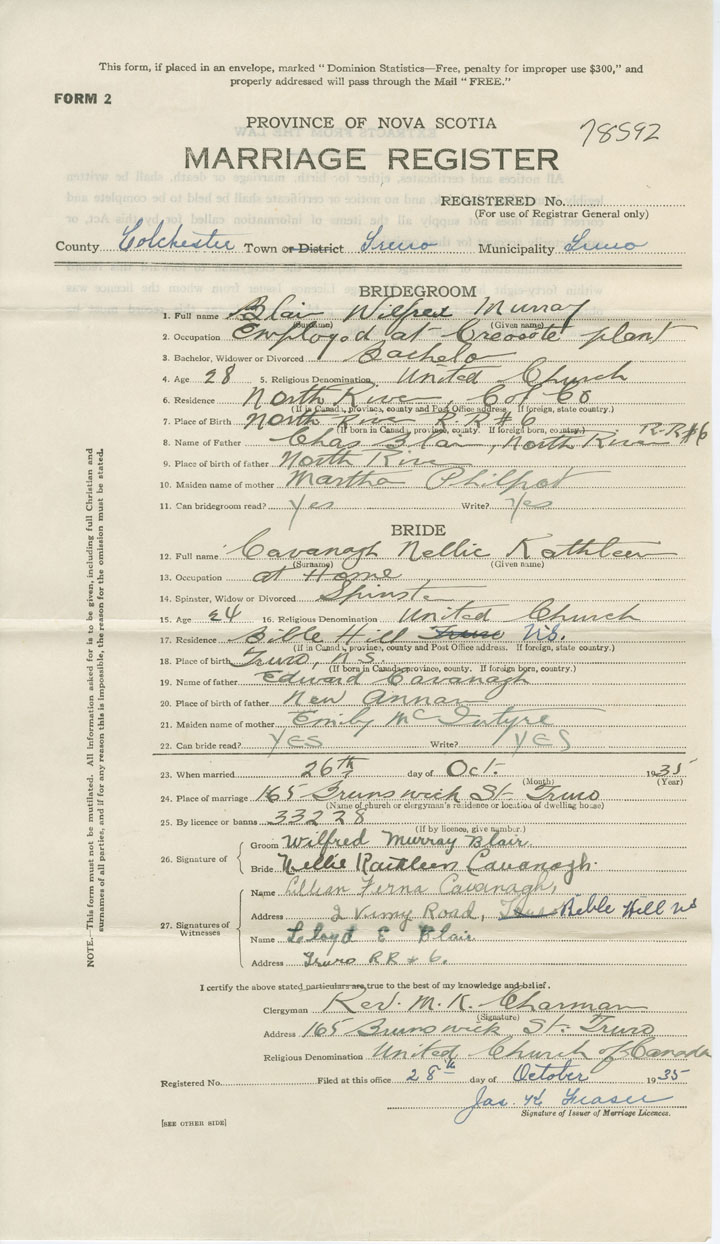 This form, if placed in an envelope, marked "Dominion Statistics—Free, penalty for improper use $300," and
properly addressed will pass through the Mail "FREE."
FORM 2
PROVINCE OF NOVA SCOTIA
78592
MARRIAGE REGISTER
REGISTERED No.
(For use of Registrar General only)
County Colchester Town or District Truro Municipality Truro
BRIDEGROOM
1. Full name Blair Wilfred Murray
(Surname) (Given name)
2. Occupation Employed at Creosote plant
3. Bachelor, Widower or Divorced Bachelor
4. Age 28 5. Religious Denomination United Church
6. Residence North River, Col Co
(If in Canada, province, county and Post Office address. If foreign, state country.)
7. Place of Birth North River R.R #6
(If born in Canada, province, county. If foreign born, country.)
8. Name of Father Chas Blair, North River R.R #6
9. Place of birth of father North River
10. Maiden name of mother Martha Philpot
11. Can bridegroom read? Yes Write? Yes
BRIDE
12. Full name Cavanagh Nellie Kathleen
(Surname) (Given name)
13. Occupation at Home
14. Spinster, Widow or Divorced Spinster
15. Age 24 16. Religious Denomination United Church
17. Residence Bible Hill Truro N.S.
(If in Canada, province, county and Post Office address. If foreign, state country.)
18. Place of birth Truro, N.S.
(If born in Canada, province, county. If foreign born, country.)
19. Name of father Edward Cavanagh
20. Place of birth of father New Annan
21. Maiden name of mother Emily McIntyre
22. Can bride read? YES Write? YES
23. When married 26th day of Oct. 1935
(Month) (Year)
24. Place of marriage 165 Brunswick St. Truro
(Name of church or clergyman's residence or location of dwelling house)
25. By licence or banns 33228
(If by licence, give number.)
26. Signature of
Groom Wilfred Murray Blair.
Bride Nellie Kathleen Cavanagh.
27. Signatures of Witnesses
Name Lillian Verna Cavanagh,
Address 2 Vimy Road, Truro Bible Hill NS
Name Lloyd E Blair
Address Truro RR # 6.
I certify the above stated particulars are true to the best of my knowledge and belief.
Clergyman Rev. M. K. Charman
(Signature)
Address 165 Brunswick St. Truro
Religious Denomination United Church of Canada
Registered No. Filed at this office 28th day of October 1935
Jas. H Fraser
Signature of Issuer of Marriage Licences.
[SEE OTHER SIDE]
NOTE.—This form must not be mutilated. All information asked for is to be given, including full Christian and
surnames of all parties, and if for any reason this is impossible, the reason for the omission must be stated.